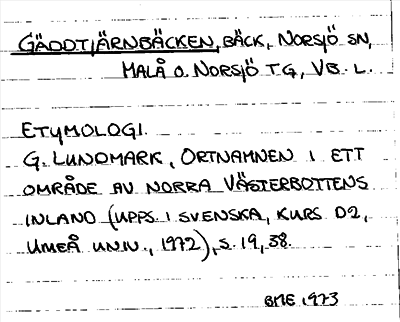 GÄDDTJÄRNBÄCKEN, BÄCK, NORSJÖ SN,
MALÅ O. NORSJÖ T.G., VB. L.
ETYMOLOGI.
G. LUNDMARK, ORTNAMNEN I ETT
OMRÅDE AV NORRA VÄSTERBOTTENS
INLAND (UPPS. I SVENSKA, KURS D2,
UMEÅ UNIV., 1972), S. 19, 38.
BME 1973